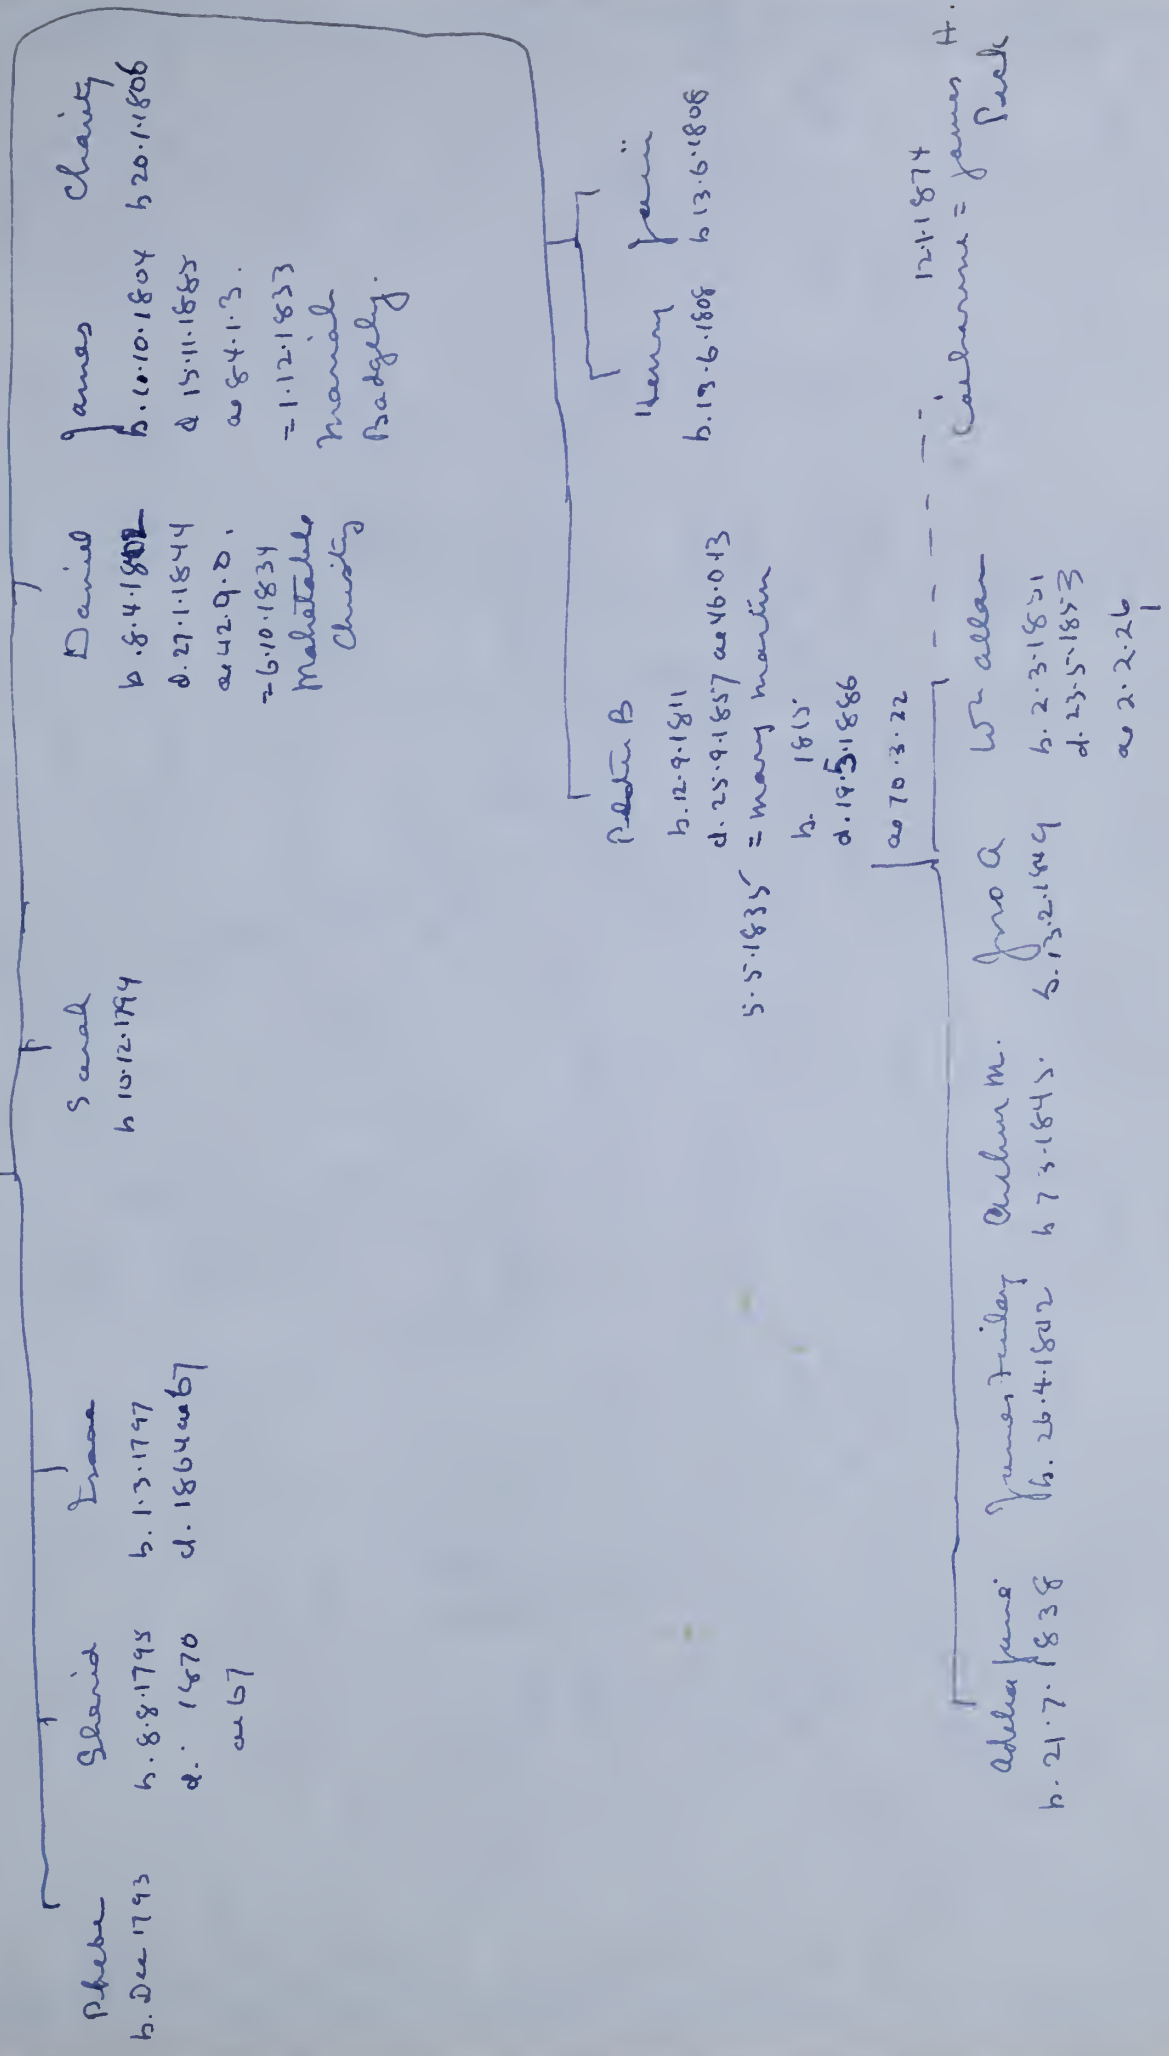 Phebe
b. Dec 1793
David
b. 8.8.1795
d. 1870
ae 67
Isaac
b. 1.3.1797
d. 1864 ae 67
Sarah
b 10.12.1794
Daniel
b. 8.4.1802
d. 27.1.1844
ae 42.9.0.
= 6.10.1834
Mahetable
Christy
James
b. 10.10.1804
d 15.11.1885
ae 84.1.3.
= 1.12.1833
Mariah
Badgely.
Charity
b 20.1.1806
B
b. 12.9.1811
d. 25.9.1857 ae 46.0.13
5.5.1835 = Mary Martin
b. 1815
d. 19.5.1886
ae 70.3.22
Henry
b. 19.6.1808
b 13.6.1808
Adelia Jane
b. 21.7.1838
James Finlay
b. 26.4.1842
Arthur M.
b 7 3.1845.
Jno A
b. 13.2.1849
Wm Allan
b. 2.3.1851
d. 23.5.1853
ae 2.2.26
12.1.1874
Catharine = James H.
Peck